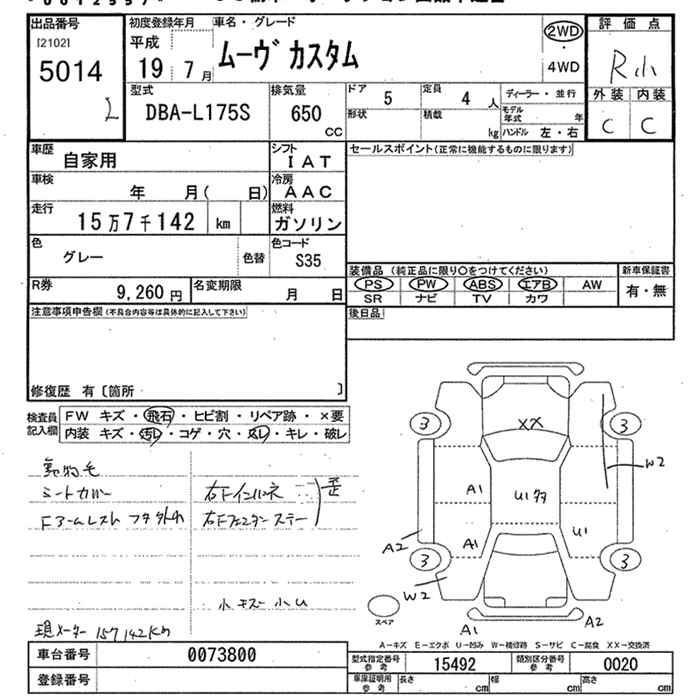 出品番号
[2102]
5014
初度登録年月
車名・グレード
平成
19 7月
ムーヴ カスタム
2WD
・
4WD
評価点
R小
外装 内装
C C
型式
DBA-L175S
排気量
650
CC
ドア 5
定員 4人
形状
積載 kg
ディーラー・並行
モデル年式 年
ハンドル 左・右
車歴
自家用
シフト
IAT
車検
年 月( 日)
冷房
AAC
走行
15万7千142 km
燃料
ガソリン
色
グレー
色替
色コード
S35
R券
9,260円
名変期限
月 日
セールスポイント(正常に機能するものに限ります)
装備品(純正品に限り〇をつけてください)
PS PW ABS エアB AW
SR ナビ TV カワ
新車保証書
有・無
後日品
注意事項申告欄(不具合内容等は具体的に記入して下さい)
修復歴 有〔箇所 〕
検査員記入欄
FW キズ・飛石・ヒビ割・リペア跡・×要
内装 キズ・汚レ・コゲ・穴・凹レ・キレ・破レ
動物毛
シートカバー
Fアームレスト フタ外れ
右Fインパネ
右Fフェンダーステー
歪
小キズ 小U
現メーター 157142Km
3
3
XX
W2
A1
U1多
A1
U1
A2
3
3
W2
スペア
A1
A2
A-キズ E-エクボ U-凹み W-補修跡 S-サビ C-腐食 XX-交換済
車台番号
0073800
登録番号
型式指定番号 参考
15492
類別区分番号 参考
0020
車庫証明用 参考
長さ cm
幅 cm
高さ cm